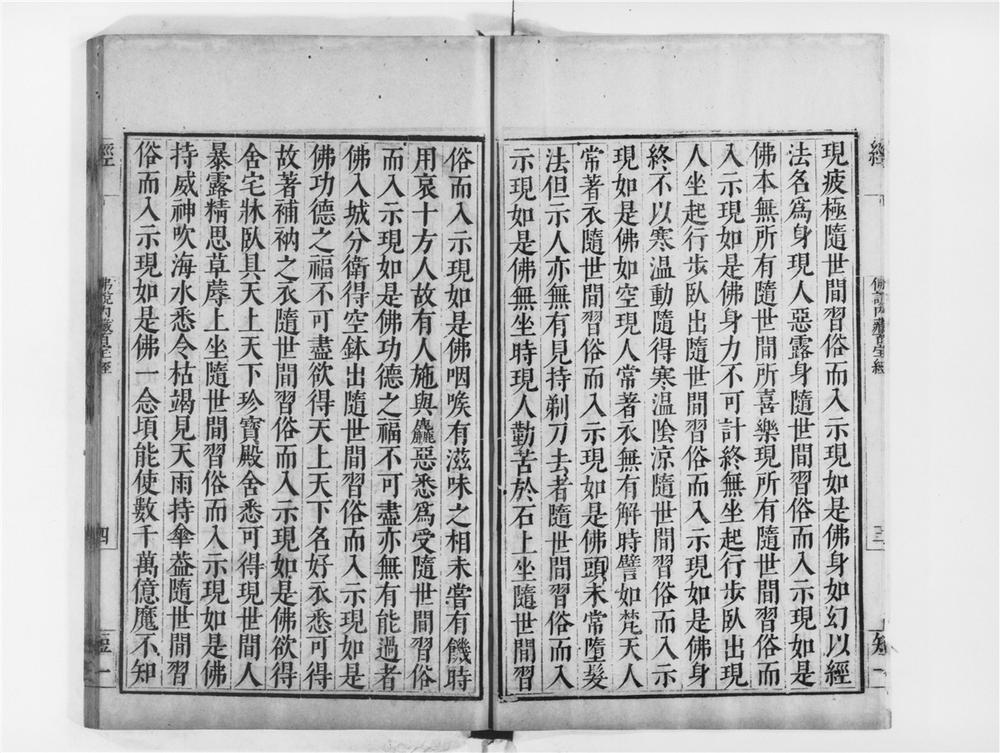 現疲極隨世間習俗而入示現如是佛身如幻以經
法名爲身現人惡露身隨世間習俗而入示現如是
佛本無所有隨世間所喜樂現所有隨世間習俗而
入示現如是佛身力不可計終無坐起行步臥出現
人坐起行步臥出隨世間習俗而入示現如是佛身
終不以寒溫動隨得寒溫陰涼隨世間習俗而入示
現如是佛如空現人常著衣無有解時譬如梵天人
常著衣隨世間習俗而入示現如是佛頭未常墮髮
法但示人亦無有見持剃刀去者隨世間習俗而入
示現如是佛無坐時現人勤苦於石上坐隨世間習
俗而入示現如是佛咽喉有滋味之相未嘗有饑時
用哀十方人故有人施與麤惡悉爲受隨世間習俗
而入示現如是佛功德之福不可盡亦無有能過者
佛入城分衛得空鉢出隨世間習俗而入示現如是
佛功德之福不可盡欲得天上天下名好衣悉可得
故著補衲之衣隨世間習俗而入示現如是佛欲得
舍宅牀臥具天上天下珍寶殿舍悉可得現世間人
暴露精思草蓐上坐隨世間習俗而入示現如是佛
持威神吹海水悉令枯竭見天雨持傘蓋隨世間習
俗而入示現如是佛一念頃能使數千萬億魔不知
經
佛說內藏百寶經
三
經
佛說內藏百寶經
四